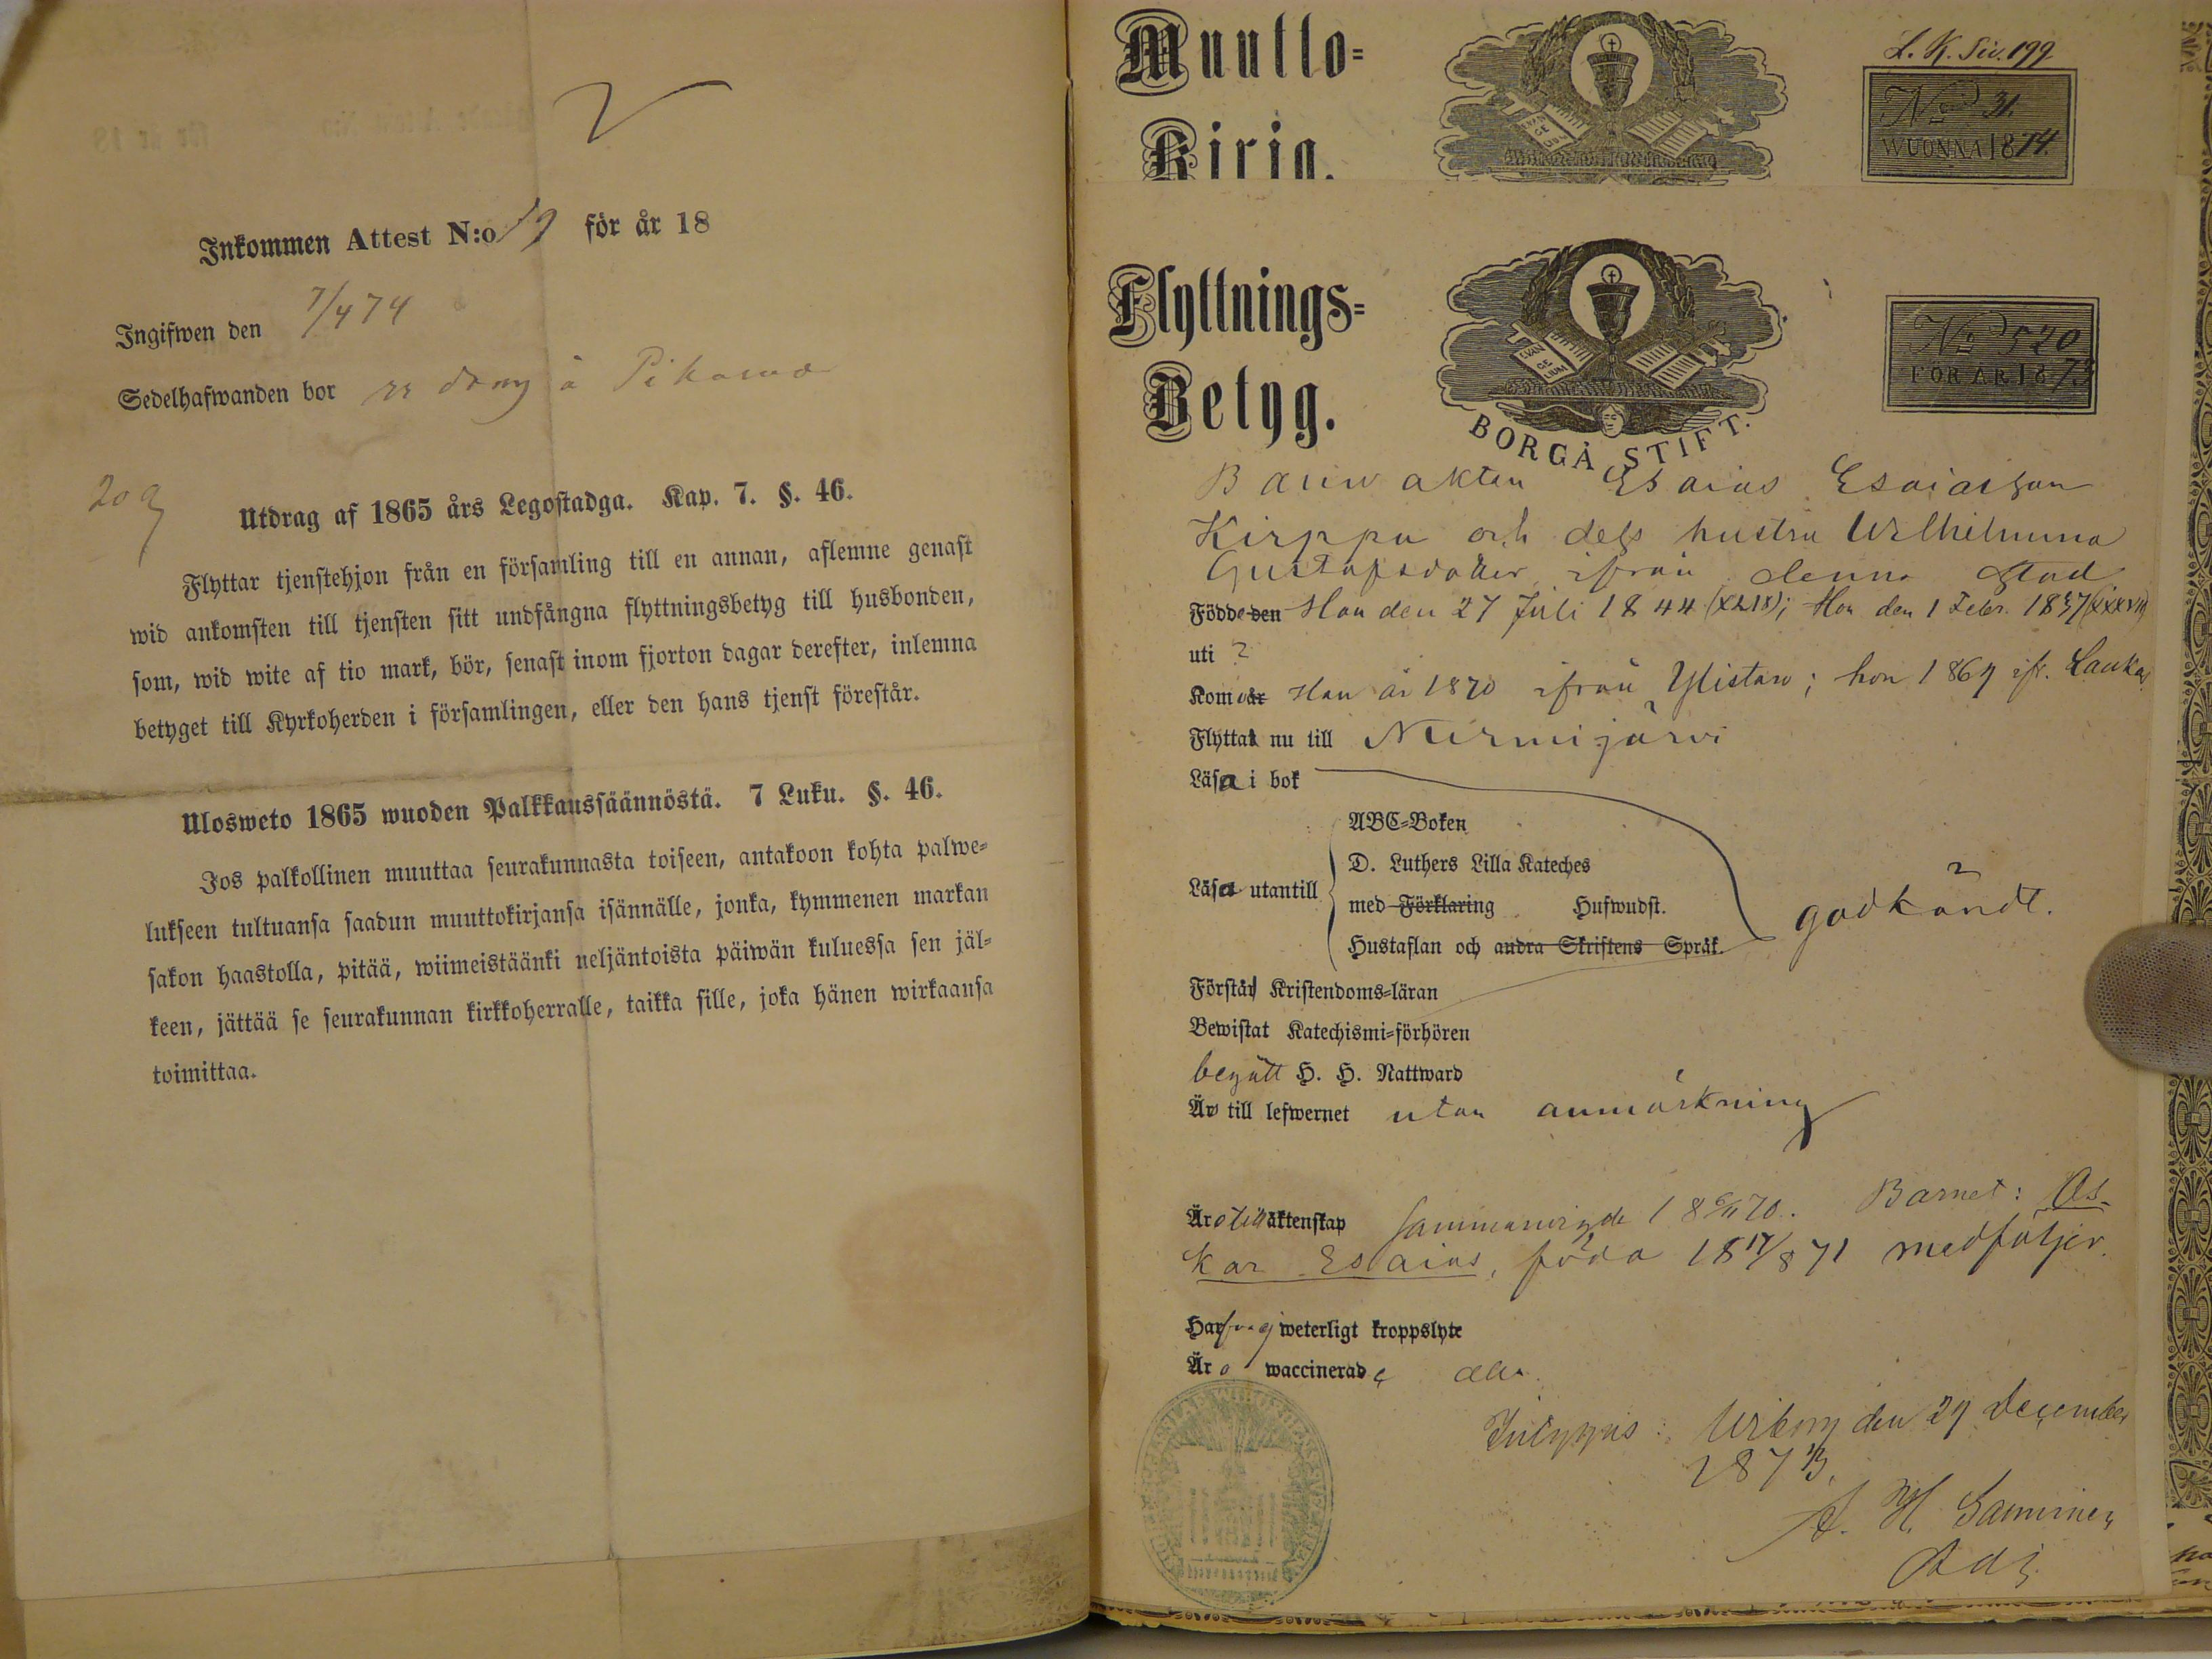 Inkommen Attest N:o 19 för år 18
Ingifwen den 7/4 74
Sedelhafwanden bor
Utdrag af 1865 års Legostadga. Kap. 7. §. 46.
Flyttar tjenstehjon från en församling till en annan, aflemne genast
wid ankomsten till tjensten sitt undfångna flyttningsbetyg till husbonden,
som, wid wite af tio mark, bör, senast inom fjorton dagar derefter, inlemna
betyget till Kyrkoherden i församlingen, eller den hans tjenst förestår.
Ulosweto 1865 wuoden Palkkaussäännöstä. 7 Luku. §. 46.
Jos palkollinen muuttaa seurakunnasta toiseen, antakoon kohta palwe=
lukseen tultuansa saadun muuttokirjansa isännälle, jonka, kymmenen markan
sakon haastolla, pitää, wiimeistäänki neljäntoista päiwän kuluessa sen jäl=
keen, jättää se seurakunnan kirkkoherralle, taikka sille, joka hänen wirkaansa
toimittaa.
Muutto=
Kirja.
EVAN GE LIUM
L. K. Siv. 199
No 31.
WUONNA 1874.
Flyttnings=
Betyg.
EVAN GE LIUM
BORGÅ STIFT.
No 520
FÖR ÅR 1873
Banvakten Esaias Esaiasson
Kirppu och dess hustru Wilhelmina
Gustafsdotter ifrån denna stad
Födde den Han den 27 Juli 1844 (XLIV); Hon den 1 Febr. 1837 (XXXVII)
uti ?
Kom år Han år 1870 ifrån Ylistaro; hon 1869 ifr. Laukas
Flyttat nu till Nurmijärvi
Läsa i bok
ABC=Boken
D. Luthers Lilla Kateches
Läsa utantill
med Förklaring Hufwudst.
Hustaflan och andra Skriftens Språk
godkändt.
Förstår Kristendoms=läran
Bewistat Katechismi=förhören
begått H. H. Nattward
Är till lefwernet utan anmärkning
Äro till äktenskap sammanvigde 18 6/11 70. Barnet: Os-
kar Esaias, född 18 17/8 71 medföljer.
Hafva ej weterligt kroppslyte
Äro waccinerade alla.
Intygas: Wiborg den 29 December
1873.
A. H. Samminen
Adj.